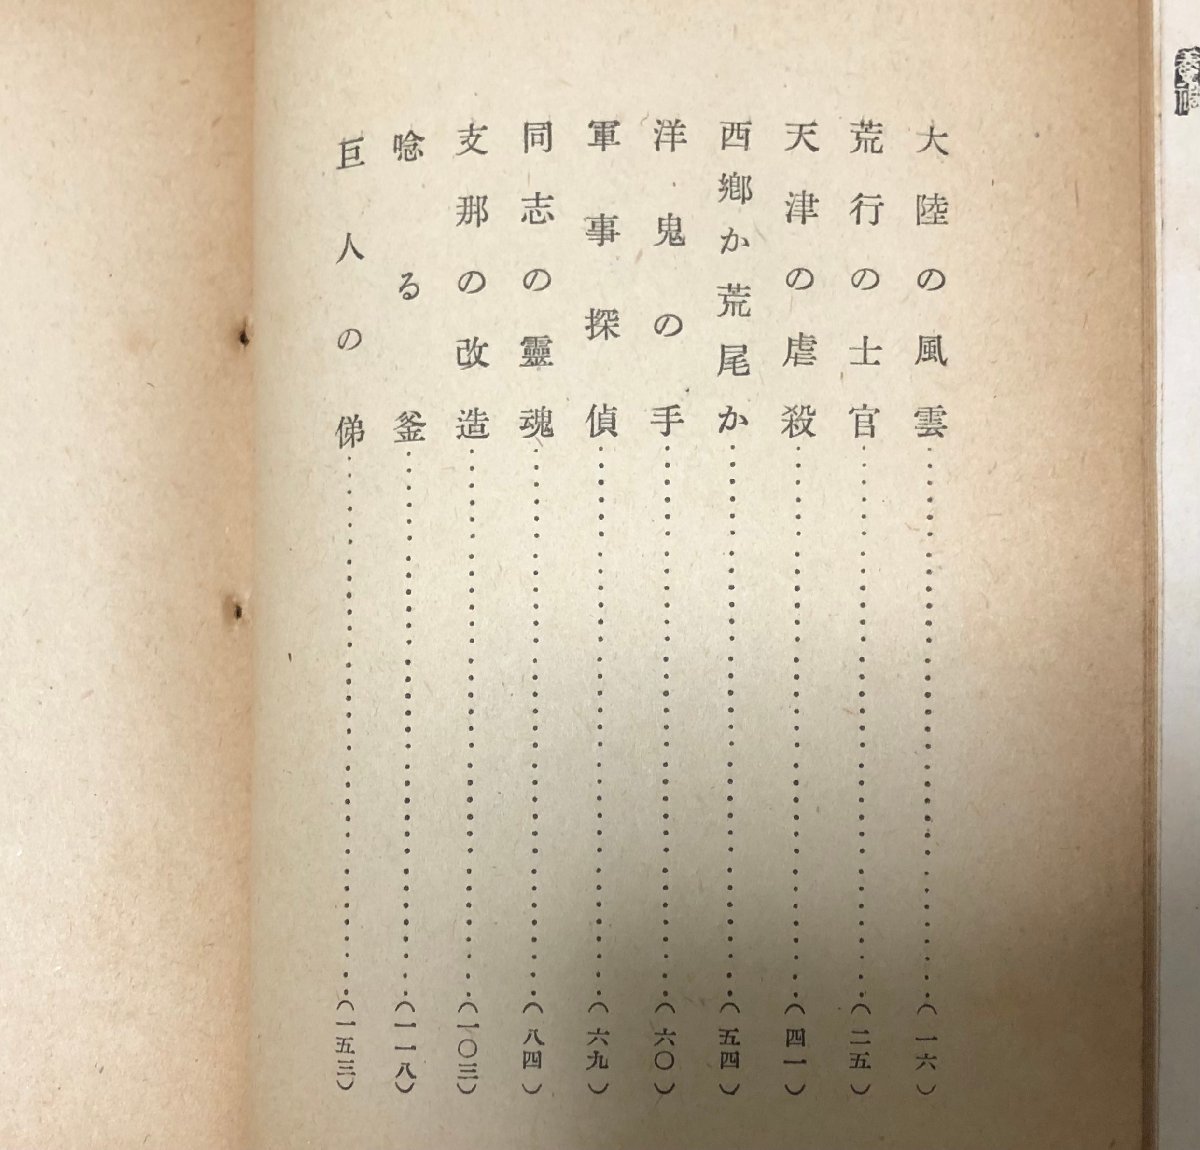 大陸の風雲……………………………(一六)
荒行の士官……………………………(二五)
天津の虐殺……………………………(四一)
西鄕か荒尾か……………………………(五四)
洋鬼の手……………………………(六〇)
軍事探偵……………………………(六九)
同志の靈魂……………………………(八四)
支那の改造……………………………(一〇三)
唸る釜……………………………(一一八)
巨人の俤……………………………(一五三)